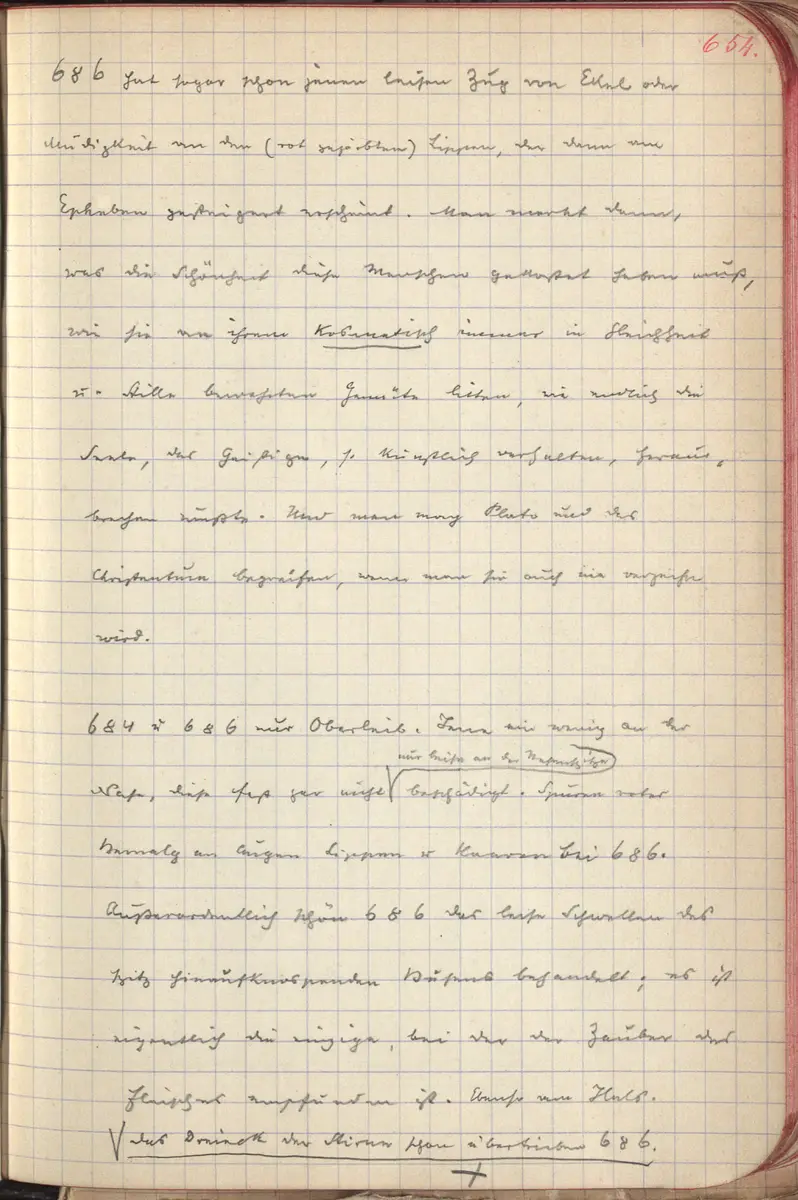 654.
686 hat sogar schon jenen leisen Zug von Ekel oder
Müdigkeit an den (rot gefärbten) Lippen, der dann am
Epheben gesteigert erscheint. Man merkt dann,
was die Schönheit diese Menschen gekostet haben muß,
wie sie an ihrem Kosmetisch immer in Gleichheit
u. Stille bewahrten Gemüte litten, wie endlich die
Seele, das Geistige, s. künstlich verhalten, heraus-
brechen mußte. Und man mag Plato und das
Christentum begreifen, wenn man sie auch nie verzeihen
wird.
684 u 686 nur Oberleib. Jene ein wenig an der
nur leise an der Nasenspitze
Nase, diese fast gar nicht beschädigt. Spuren roter
Bemalg an Augen Lippen u Haaren bei 686.
Außerordentlich schön 686 das leise Schwellen des
spitz hinaufknospenden Busens behandelt; es ist
eigentlich die einzige, bei der der Zauber des
Fleisches empfunden ist. Ebenso am Hals.
das Dreieck der Stirne schon übertrieben 686.